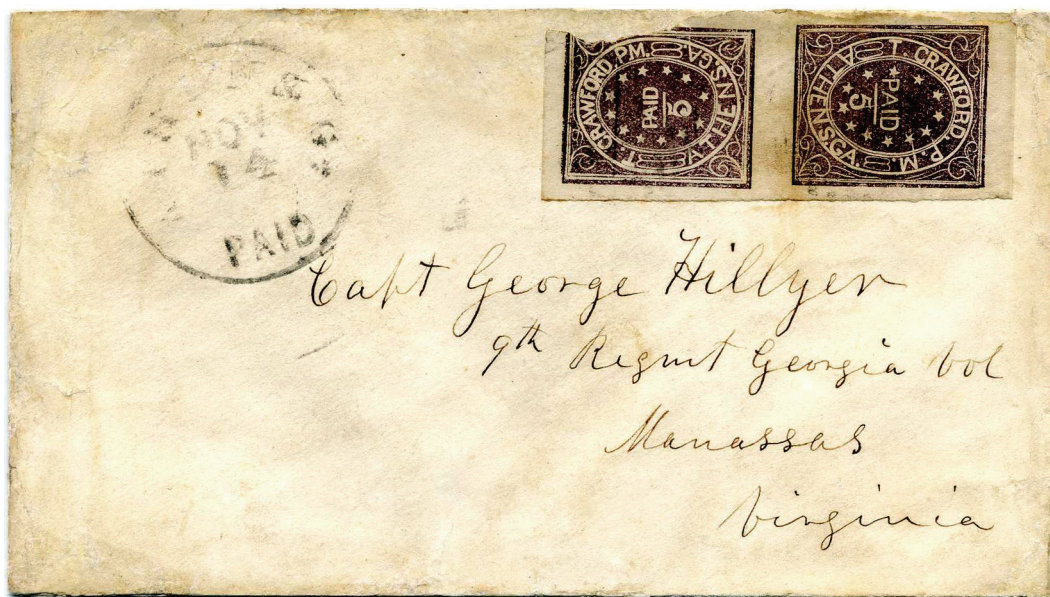 NOV
14
PAID
T. CRAWFORD. P.M.
ATHENS.GA.
PAID
5
T. CRAWFORD. P.M.
ATHENS.GA.
PAID
5
Capt George Hillyer
9th Regmt Georgia Vol
Manassas
Virginia